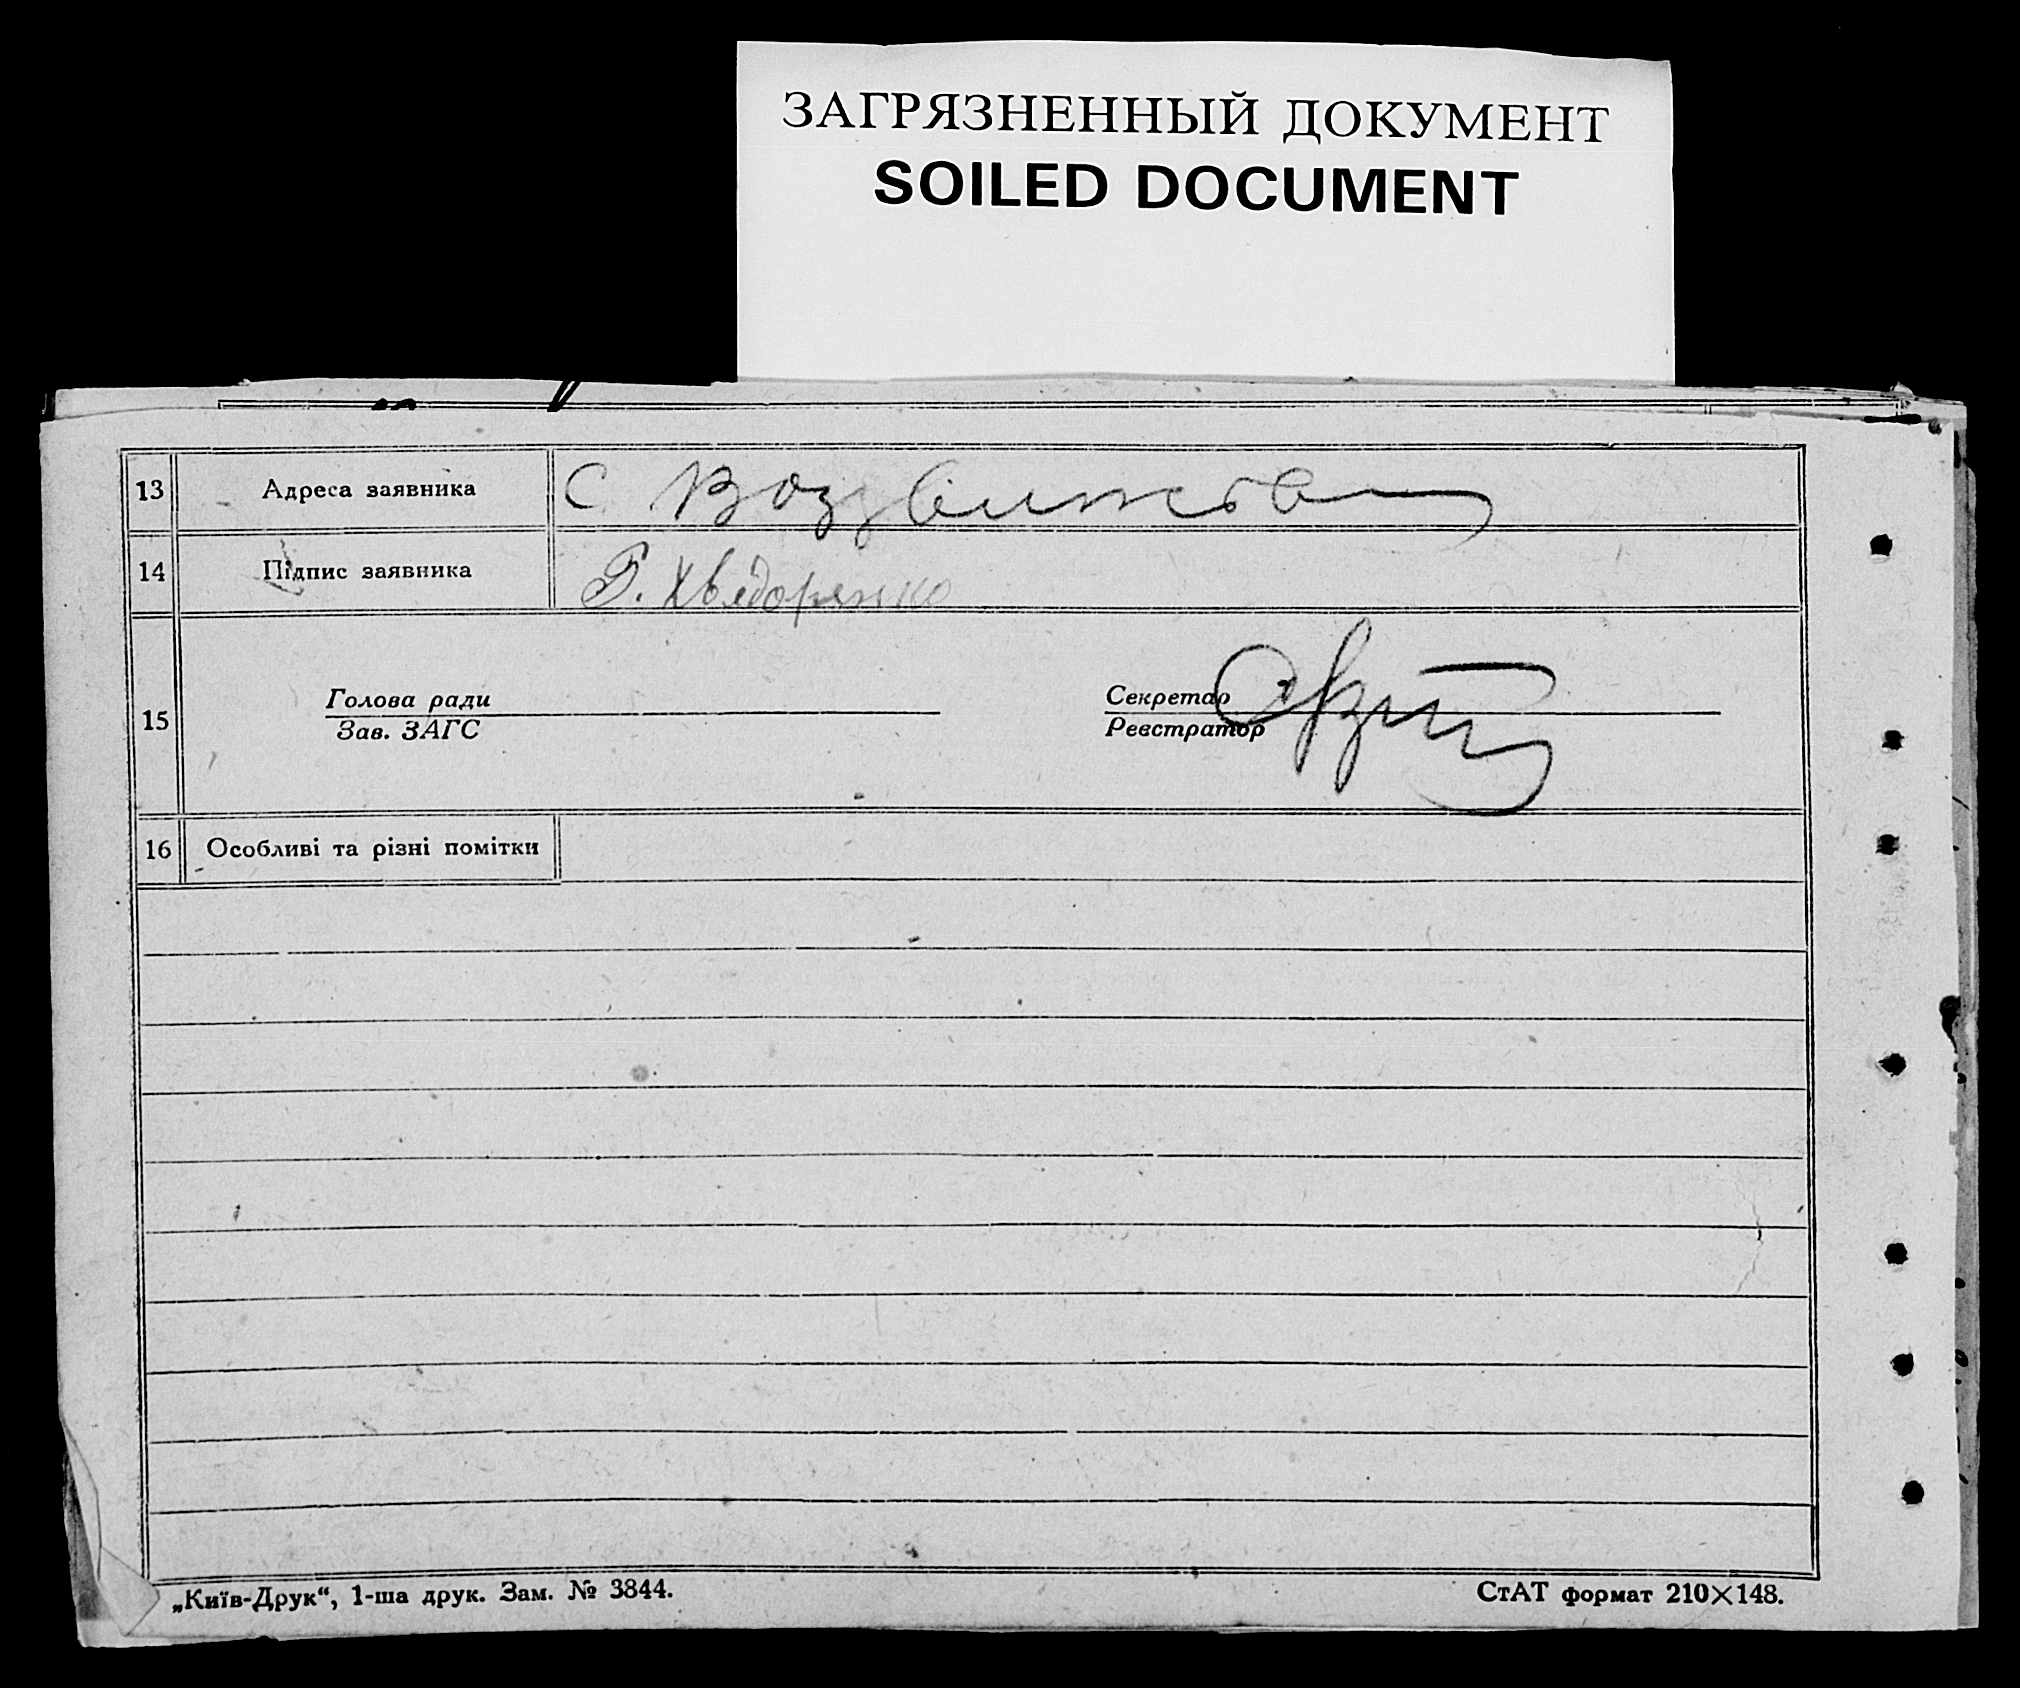 ЗАГРЯЗНЕННЫЙ ДОКУМЕНТ
SOILED DOCUMENT
13 Адреса заявника с Воздвиженськ
14 Підпис заявника Г. Хведоренко
15 Голова ради
Зав. ЗАГС
Секретар
Реєстратор
16 Особливі та різні помітки
„Київ-Друк“, 1-ша друк. Зам. № 3844.
СтАТ формат 210×148.